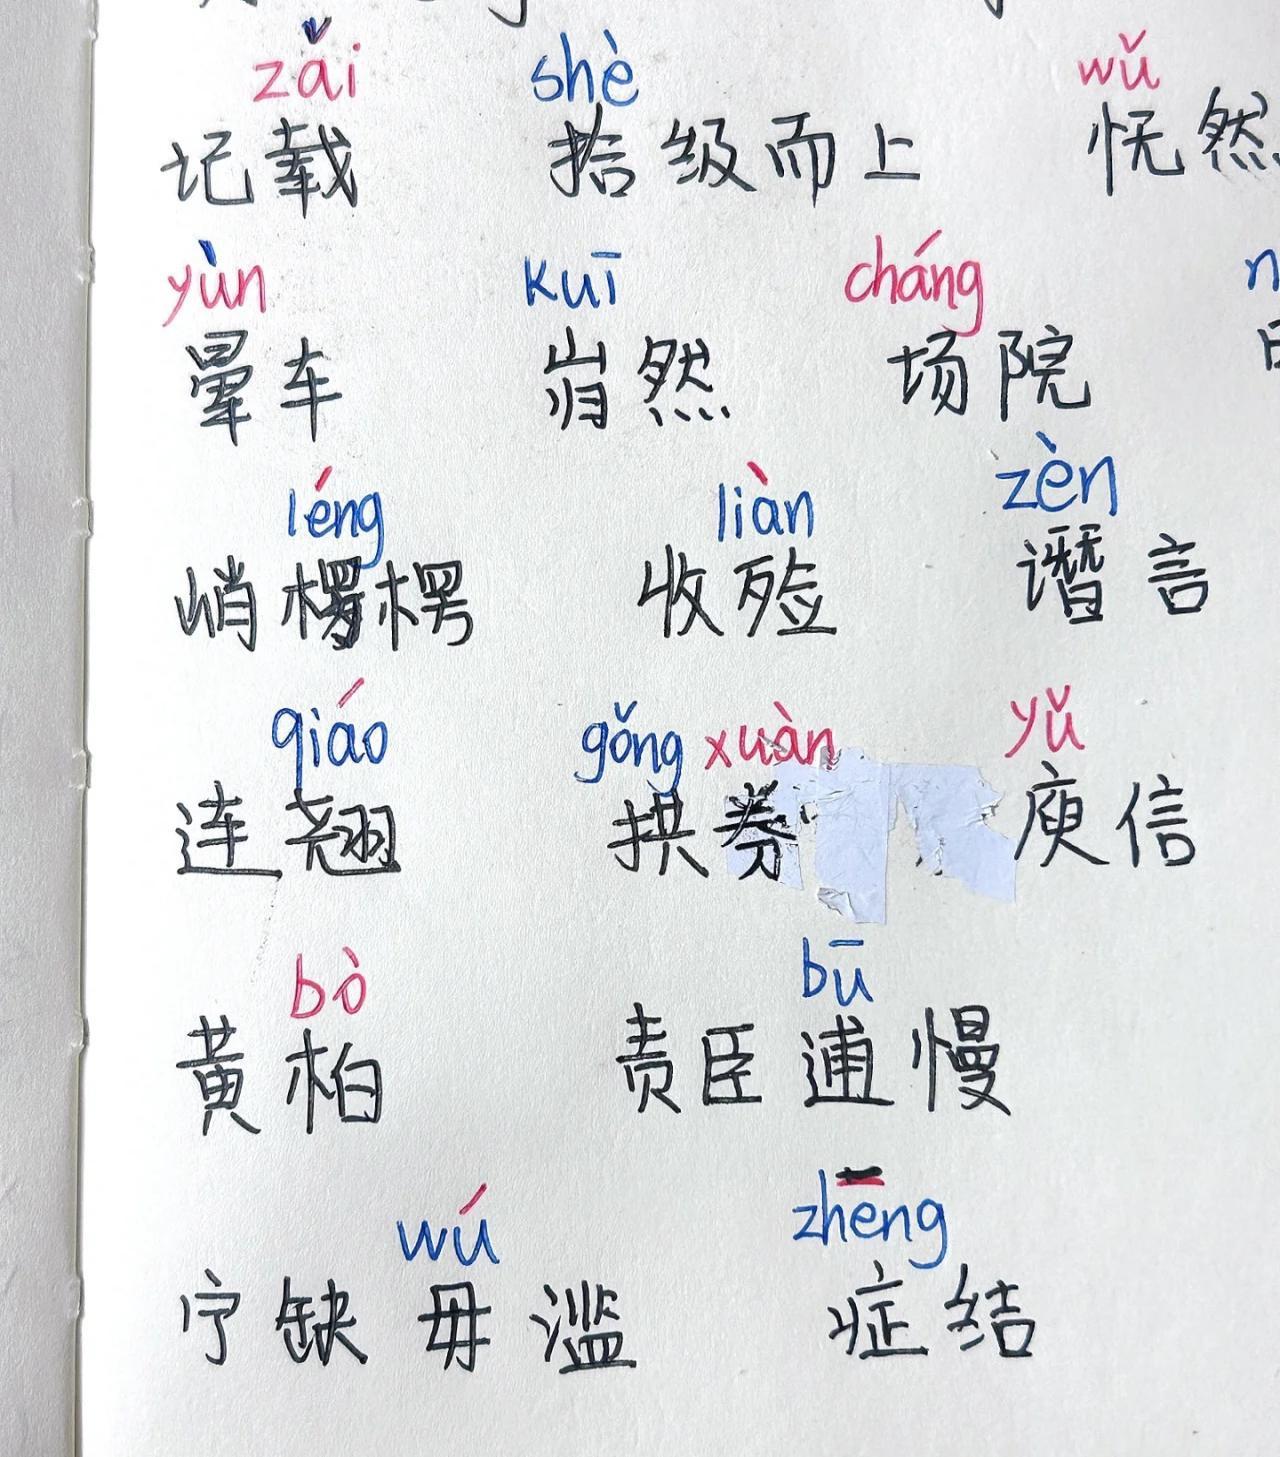 zǎi shè wǔ
记载 拾级而上 怃然
yùn kuī cháng
晕车 岿然 场院
léng liàn zèn
峭楞楞 收殓 谮言
qiáo gǒng xuàn yǔ
连翘 拱券 庾信
bò bū
黄柏 责臣逋慢
wú zhēng
宁缺毋滥 症结